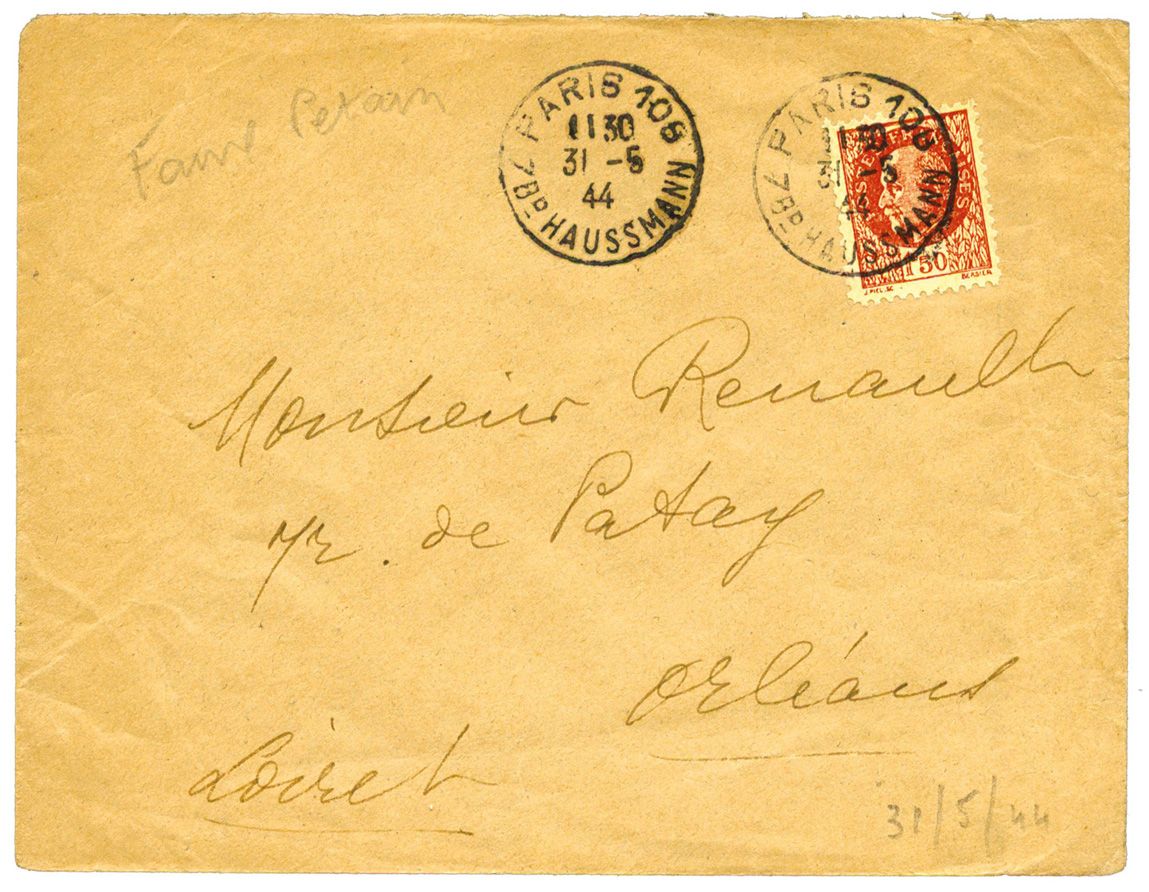 Faux Petain
PARIS 108
11 30
31 - 5
44
Bᴰ HAUSSMANN
PARIS 108
31 - 5
44
Bᴰ HAUSSMANN
1 50
J. PIEL. SC
BERSIER
Monsieur Renault
r. de Patay
Orléans
Loiret
31/5/44